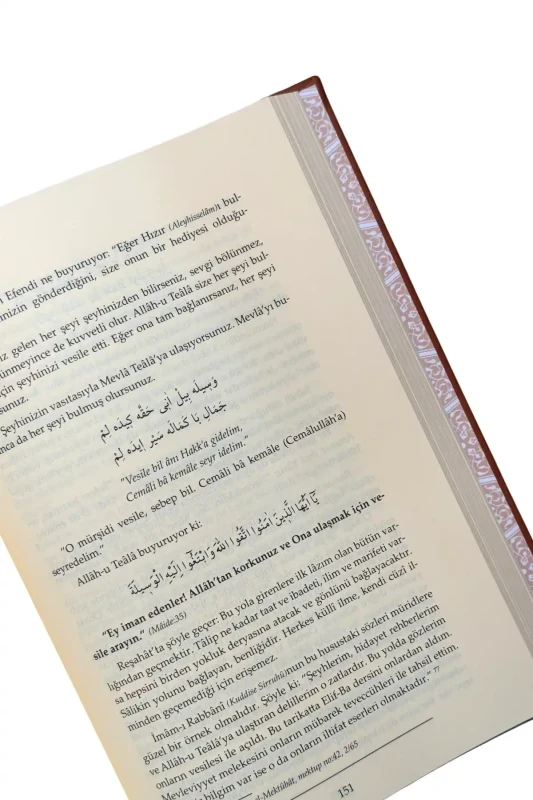 Efendi ne buyuruyor: "Eğer Hızır (Aleyhisselâm)ı bul-
nizin gönderdiğini, size onun bir hediyesi olduğu-
ız gelen her şeyi şeyhinizden bilirseniz, sevgi bölünmez,
ünmeyince de kuvvetli olur. Allâh-u Teâlâ size her şeyi bul-
için şeyhinizi vesile etti. Eğer ona tam bağlanırsanız, her şeyi
sunuz.
Şeyhinizin vasıtasıyla Mevlâ Teâlâ'ya ulaşıyorsunuz. Mevlâ'yı bu-
nca da her şeyi bulmuş olursunuz.
وَسِيلَه بِيلْ اٰنِى حَقَّه كِيدَه لِمْ
جَمَالِ بَا كَمَالَه سَيْر اِيدَه لِمْ
"Vesile bil ânı Hakk'a gidelim,
Cemâli bâ kemâle seyr idelim."
"O mürşidi vesile, sebep bil. Cemâli bâ kemâle (Cemâlullâh'a)
seyredelim."
Allâh-u Teâlâ buyuruyor ki:
يَٓا اَيُّهَا الَّذِينَ اٰمَنُوا اتَّقُوا اللّٰهَ وَابْتَغُٓوا اِلَيْهِ الْوَسِيلَةَ
"Ey iman edenler! Allâh'tan korkunuz ve Ona ulaşmak için ve-
sile arayın." (Mâide:35)
Reşahât'ta şöyle geçer: Bu yola girenlere ilk lâzım olan bütün var-
lığından geçmektir. Tâlip ne kadar taat ve ibadeti, ilim ve marifeti var-
sa hepsini birden yokluk deryasına atacak ve gönlünü bağlayacaktır.
Sâlikin yolunu bağlayan, benliğidir. Herkes küllî ilme, kendi cüzî il-
minden geçemediği için erişemez.
İmâm-ı Rabbânî (Kuddise Sirruhû)nun bu husustaki sözleri müridlere
güzel bir örnek olmalıdır. Şöyle ki: "Şeyhlerim, hidayet rehberlerim
ve Allâh-u Teâlâ'ya ulaştıran delillerim o zatlardır. Bu yolda gözlerim
onların vesilesi ile açıldı. Bu tarikatta Elif-Ba dersini onlardan aldım.
Mevleviyyet melekesini onların mübarek teveccühleri ile tahsil ettim.
bilgim var ise o da onların iltifat eserleri olmaktadır." 77
-Mektûbât, mektup no:42, 2/65
151